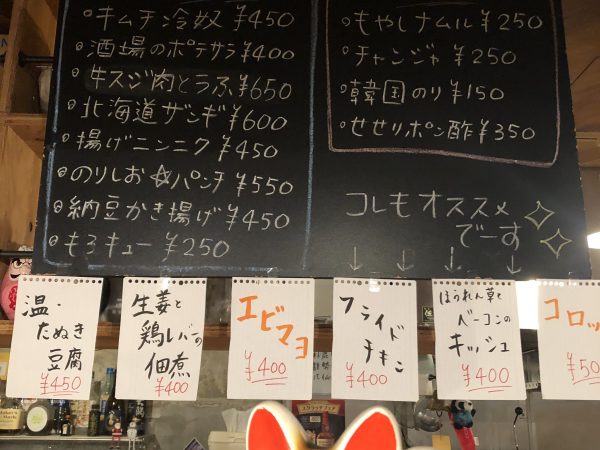 キムチ冷奴¥450
酒場のポテサラ¥400
牛スジ肉とうふ¥650
北海道ザンギ¥600
揚げニンニク¥450
のりしお☆パンチ¥550
納豆かき揚げ¥450
もろキュー¥250
もやしナムル¥250
チャンジャ¥250
韓国のり¥150
せせりポン酢¥350
コレもオススメ
でーす
↓ ↓ ↓ ↓
温・
たぬき
豆腐
¥450
生姜と
鶏レバーの
佃煮
¥400
エビマヨ
¥400
フライド
チキン
¥400
ほうれん草と
ベーコンの
キッシュ
¥400
コロッ
¥50